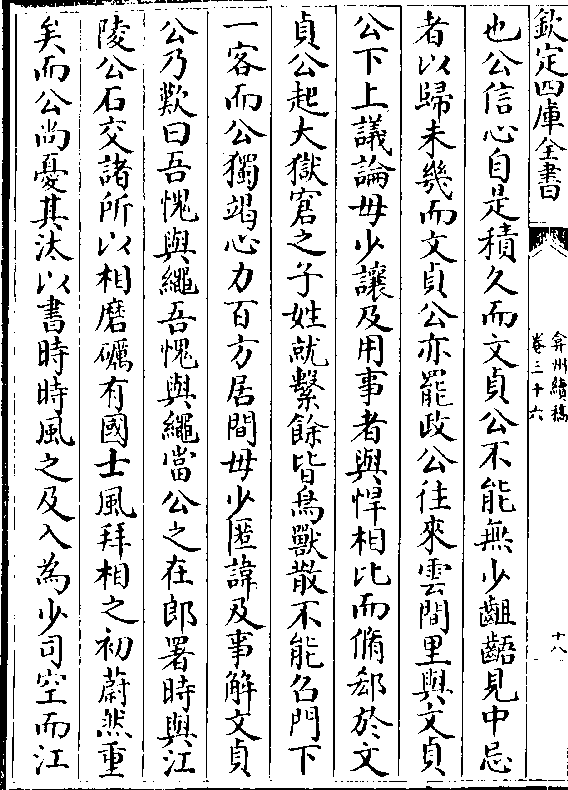 欽定四庫全書
弇州續稿
卷三十六
十八
也公信心自是積久而文貞公不能無少齟齬見中忌
者以歸未幾而文貞公亦罷政公往來雲間里與文貞
公下上議論毋少讓及用事者與悍相比而脩郄於文
貞公起大獄窘之子姓就繫餘皆鳥獸散不能名門下
一客而公獨竭心力百方居間毋少匿諱及事解文貞
公乃歎曰吾愧與繩吾愧與繩當公之在郎署時與江
陵公石交諸所以相磨礪有國士風拜相之初蔚然重
矣而公尚憂其汰以書時時風之及入為少司空而江